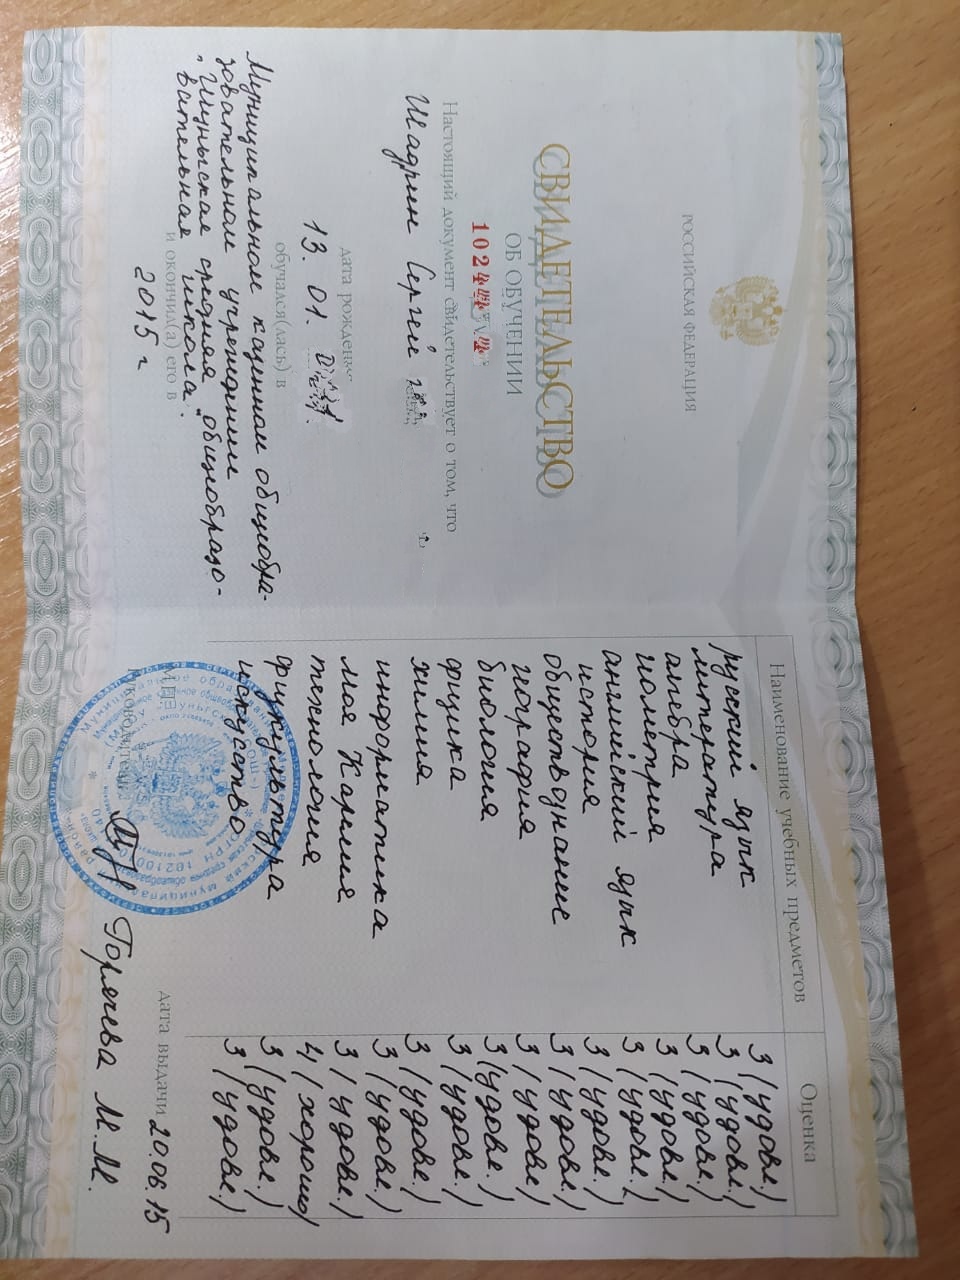 РОССИЙСКАЯ ФЕДЕРАЦИЯ
СВИДЕТЕЛЬСТВО
ОБ ОБУЧЕНИИ
Настоящий документ свидетельствует о том, что
Шадрин Сергей
дата рождения
13. 01.
обучался(лась) в
Муниципальном казенном общеобра-
зовательном учреждении
"Шуньгская средняя общеобразо-
вательная школа".
и окончил(а) его в
2015 г
Наименование учебных предметов Оценка
русский язык 3 (удовл.)
литература 3 (удовл.)
алгебра 3 (удовл.)
геометрия 3 (удовл.)
английский язык 3 (удовл.)
история 3 (удовл.)
обществознание 3 (удовл.)
география 3 (удовл.)
биология 3 (удовл.)
физика 3 (удовл.)
химия 3 (удовл.)
информатика 3 (удовл.)
моя Карелия 3 (удовл.)
технология 4 (хорошо)
физкультура 3 (удовл.)
искусство 3 (удовл.)
дата выдачи 20.06.15
Руководитель Горячева М.М.